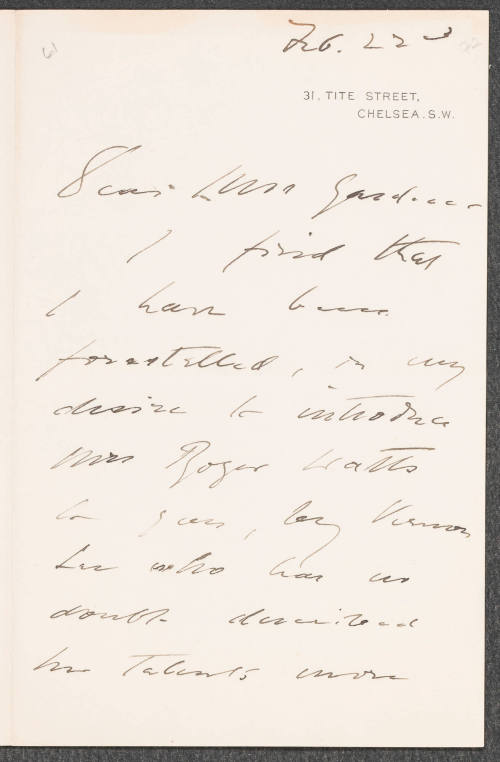 Feb. 22d
31, TITE STREET,
CHELSEA. S.W.
Dear Mrs Gardner
I find that
I have been
forestalled, in my
desire to introduce
Mrs Roger Watts
to you, by Vernon
Lee who has no
doubt described
her talents more